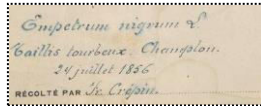 Empetrum nigrum L.
Taillis tourbeux. Champlon.
24 juillet 1856
RÉCOLTÉ PAR Fr. Crépin.